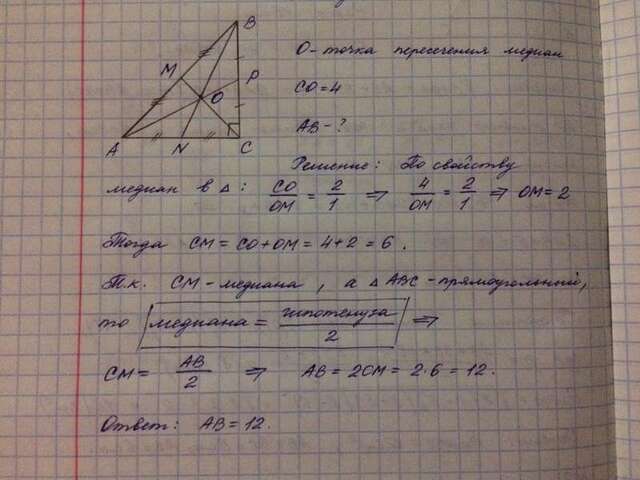 О - точка пересечения медиан
CO = 4
AB - ?
B
M
O
P
A
N
C
Решение: По свойству
медиан в Δ: CO/OM = 2/1 ⇒ 4/OM = 2/1 ⇒ OM = 2
Тогда CM = CO + OM = 4 + 2 = 6.
Т.к. CM - медиана, а Δ ABC - прямоугольный,
то медиана = гипотенуза/2 ⇒
CM = AB/2 ⇒ AB = 2CM = 2·6 = 12.
Ответ: AB = 12.